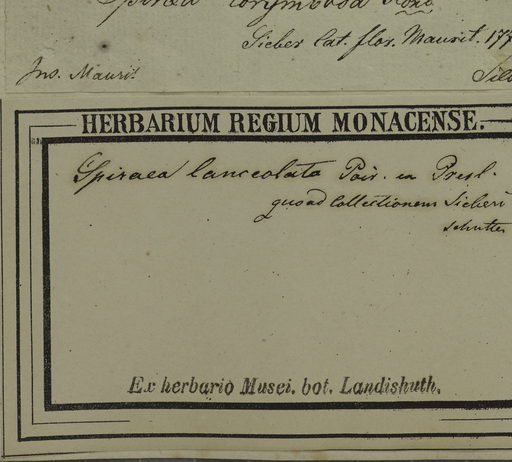 Spiraea corymbosa Roxb
Sieber Cat. flor. Maurit. 177
Ins. Maurit.
Sieb
HERBARIUM REGIUM MONACENSE.
Spiraea lanceolata Poir. ex Presl.
quoad Collectionem Sieberi
Schultes
Ex herbario Musei. bot. Landishuth.